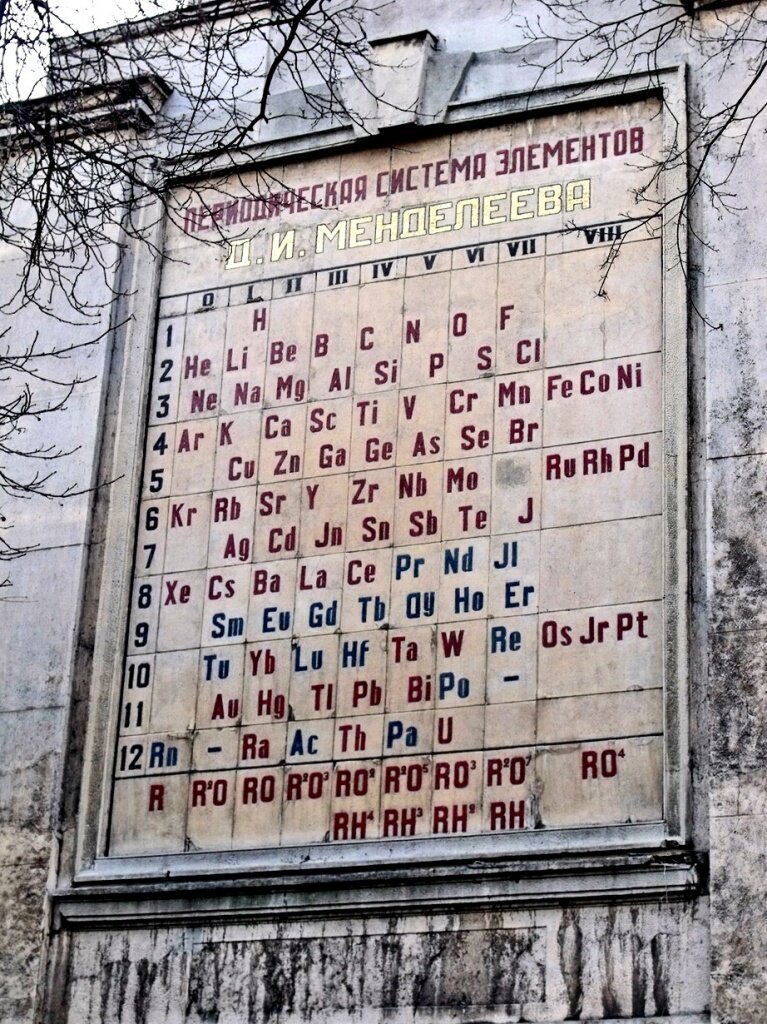 ПЕРИОДИЧЕСКАЯ СИСТЕМА ЭЛЕМЕНТОВ
Д. И. МЕНДЕЛЕЕВА
0 I II III IV V VI VII VIII
1 H
2 He Li Be B C N O F
3 Ne Na Mg Al Si P S Cl
4 Ar K Ca Sc Ti V Cr Mn Fe Co Ni
5 Cu Zn Ga Ge As Se Br
6 Kr Rb Sr Y Zr Nb Mo Ru Rh Pd
7 Ag Cd Jn Sn Sb Te J
8 Xe Cs Ba La Ce Pr Nd Jl
9 Sm Eu Gd Tb Dy Ho Er
10 Tu Yb Lu Hf Ta W Re Os Jr Pt
11 Au Hg Tl Pb Bi Po -
12 Rn - Ra Ac Th Pa U
R R²O RO R²O³ RO² R²O⁵ RO³ R²O⁷ RO⁴
RH⁴ RH³ RH² RH